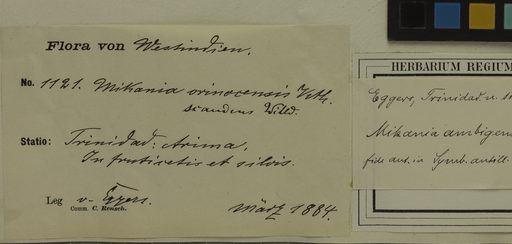 Flora von Westindien.
No. 1121. Mikania orinocensis Kth.
scandens Willd.
Statio: Trinidad: Arima.
In fruticetis et silvis.
Leg v. Eggers.
Comm. C. Reusch.
März 1884.
HERBARIUM REGIUM
Eggers, Trinidad n.
Mikania ambigen
fide aut. in Symb. antill.